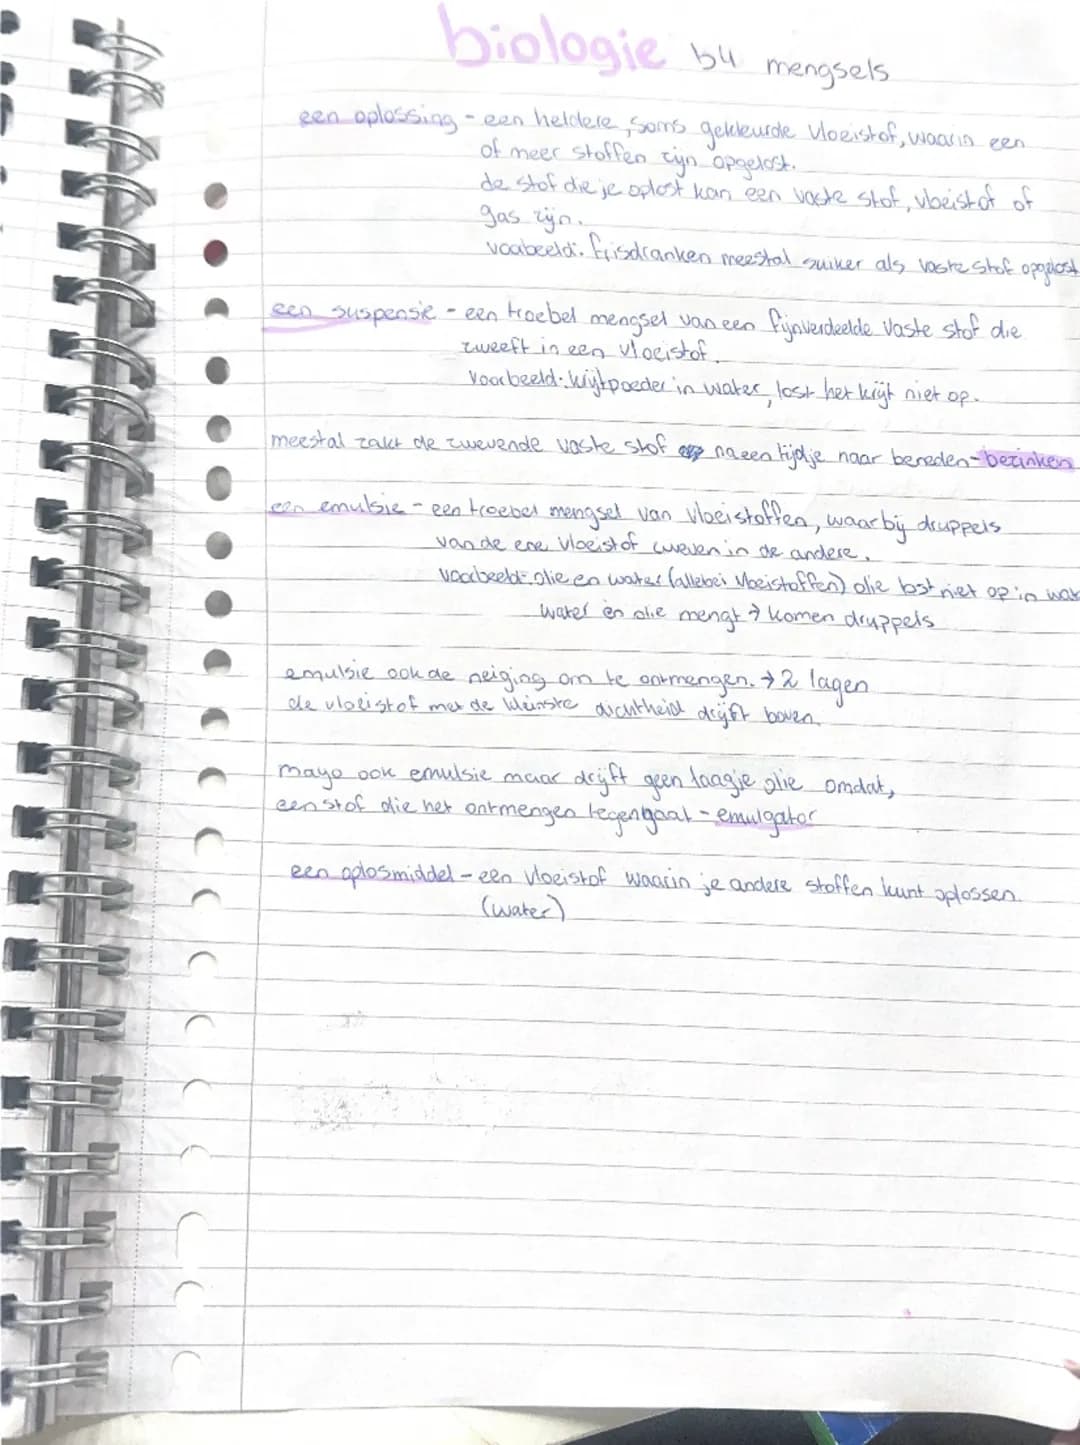 biologie b4 mengsels
een oplossing - een heldere, soms gekleurde vloeistof, waarin een
of meer stoffen zijn opgelost.
de stof die je oplost kan een vaste stof, vloeistof of
gas zijn.
voorbeeld: frisdranken meestal suiker als vaste stof opgelost
een suspensie - een troebel mengsel van een fijnverdeelde vaste stof die
zweeft in een vloeistof.
voorbeeld: krijtpoeder in water, lost het krijt niet op.
meestal zakt de zwevende vaste stof na een tijdje naar beneden - bezinken
een emulsie - een troebel mengsel van vloeistoffen, waarbij druppels
van de ene vloeistof zweven in de andere.
voorbeeld: olie en water (allebei vloeistoffen) olie lost niet op in wat
water en olie mengt → komen druppels
emulsie ook de neiging om te ontmengen. → 2 lagen
de vloeistof met de kleinste dichtheid drijft boven.
mayo ook emulsie maar drijft geen laagje olie omdat,
een stof die het ontmengen tegengaat - emulgator
een oplosmiddel - een vloeistof waarin je andere stoffen kunt oplossen.
(water)